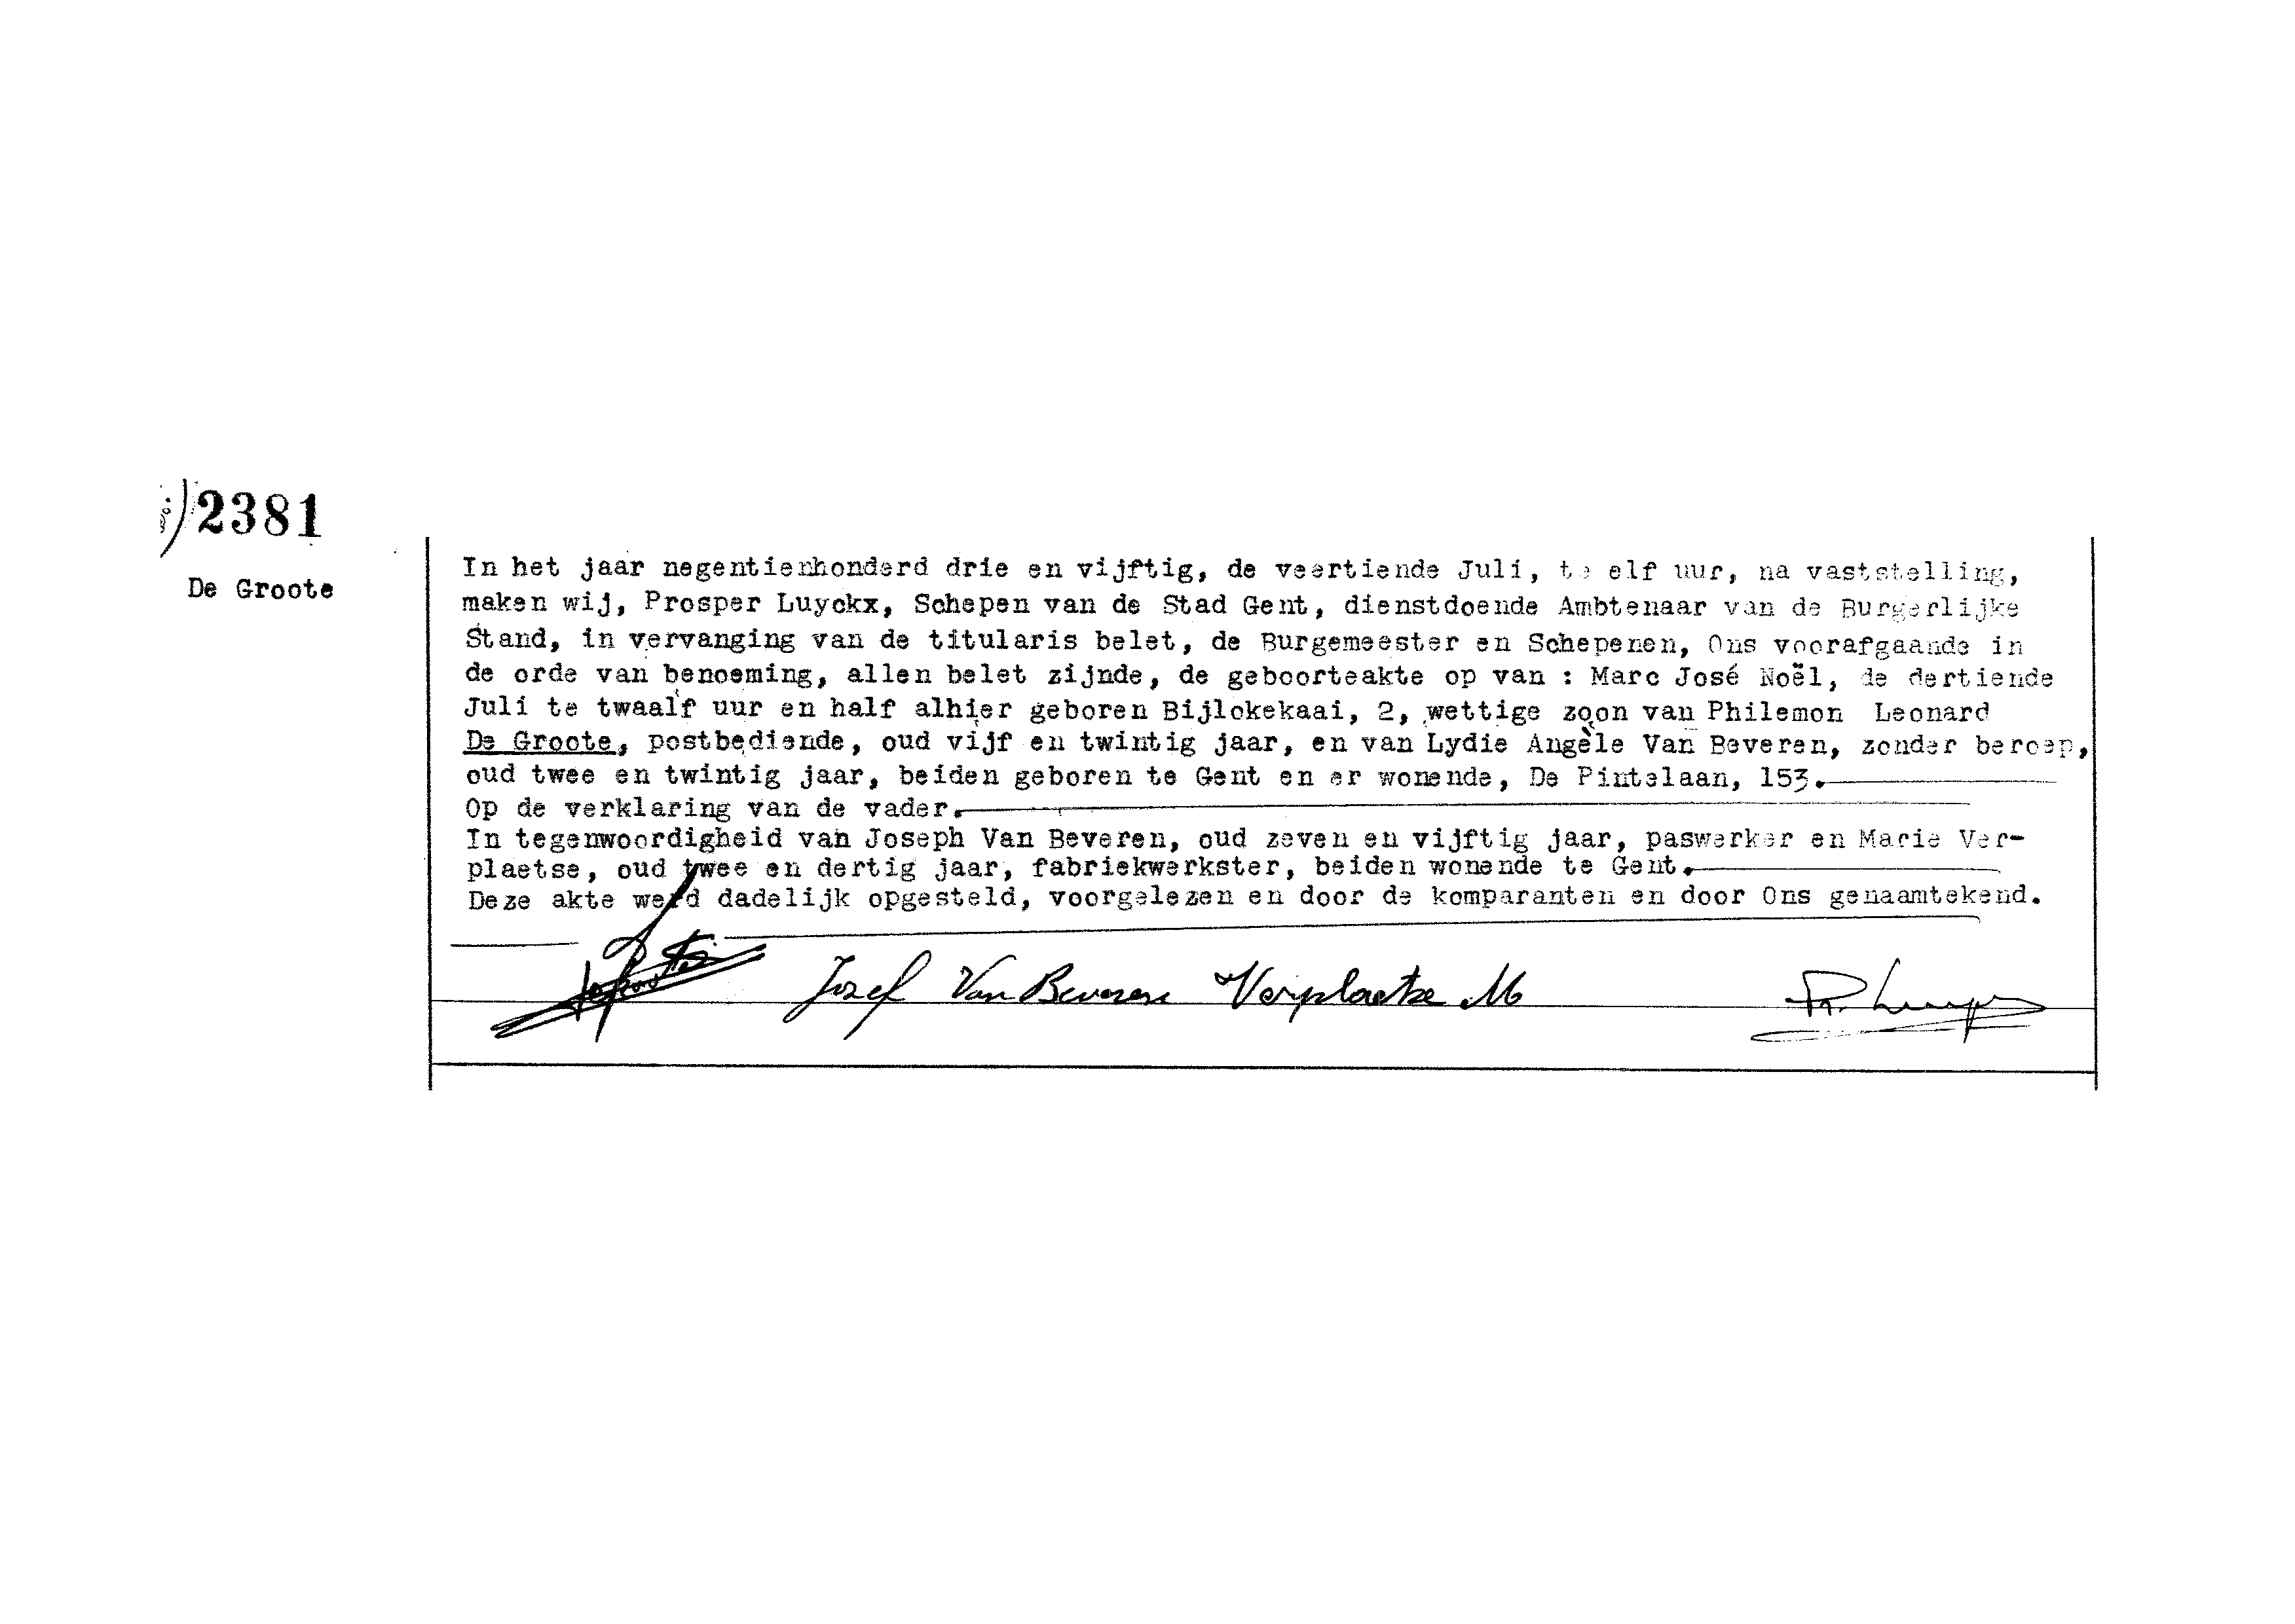 2381
De Groote
In het jaar negentienhonderd drie en vijftig, de veertiende Juli, te elf uur, na vaststelling,
maken wij, Prosper Luyckx, Schepen van de Stad Gent, dienstdoende Ambtenaar van de Burgerlijke
Stand, in vervanging van de titularis belet, de Burgemeester en Schepenen, Ons voorafgaande in
de orde van benoeming, allen belet zijnde, de geboorteakte op van : Marc José Noël, de dertiende
Juli te twaalf uur en half alhier geboren Bijlokekaai, 2, wettige zoon van Philemon Leonard
De Groote, postbediende, oud vijf en twintig jaar, en van Lydie Angèle Van Beveren, zonder beroep,
oud twee en twintig jaar, beiden geboren te Gent en er wonende, De Pintelaan, 153.
Op de verklaring van de vader.
In tegenwoordigheid van Joseph Van Beveren, oud zeven en vijftig jaar, paswerker en Marie Ver-
plaetse, oud twee en dertig jaar, fabriekwerkster, beiden wonende te Gent.
Deze akte werd dadelijk opgesteld, voorgelezen en door de komparanten en door Ons genaamtekend.
Jozef Van Beveren Verplaetse M